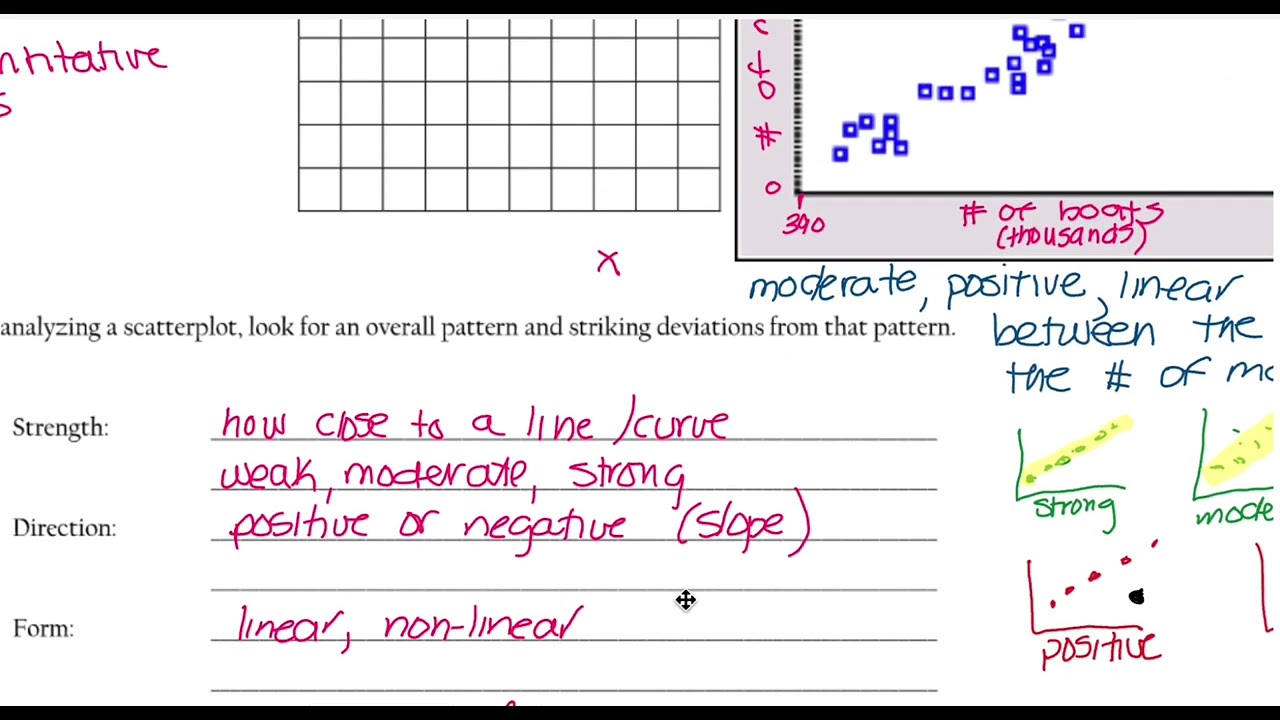 ntitative
s
c
f
o
#
0
390
# of boats
(thousands)
x
moderate, positive, linear
between the
the # of mo
analyzing a scatterplot, look for an overall pattern and striking deviations from that pattern.
Strength:
how close to a line/curve
weak, moderate, strong
Direction:
positive or negative (slope)
Form:
linear, non-linear
strong
mode
positive